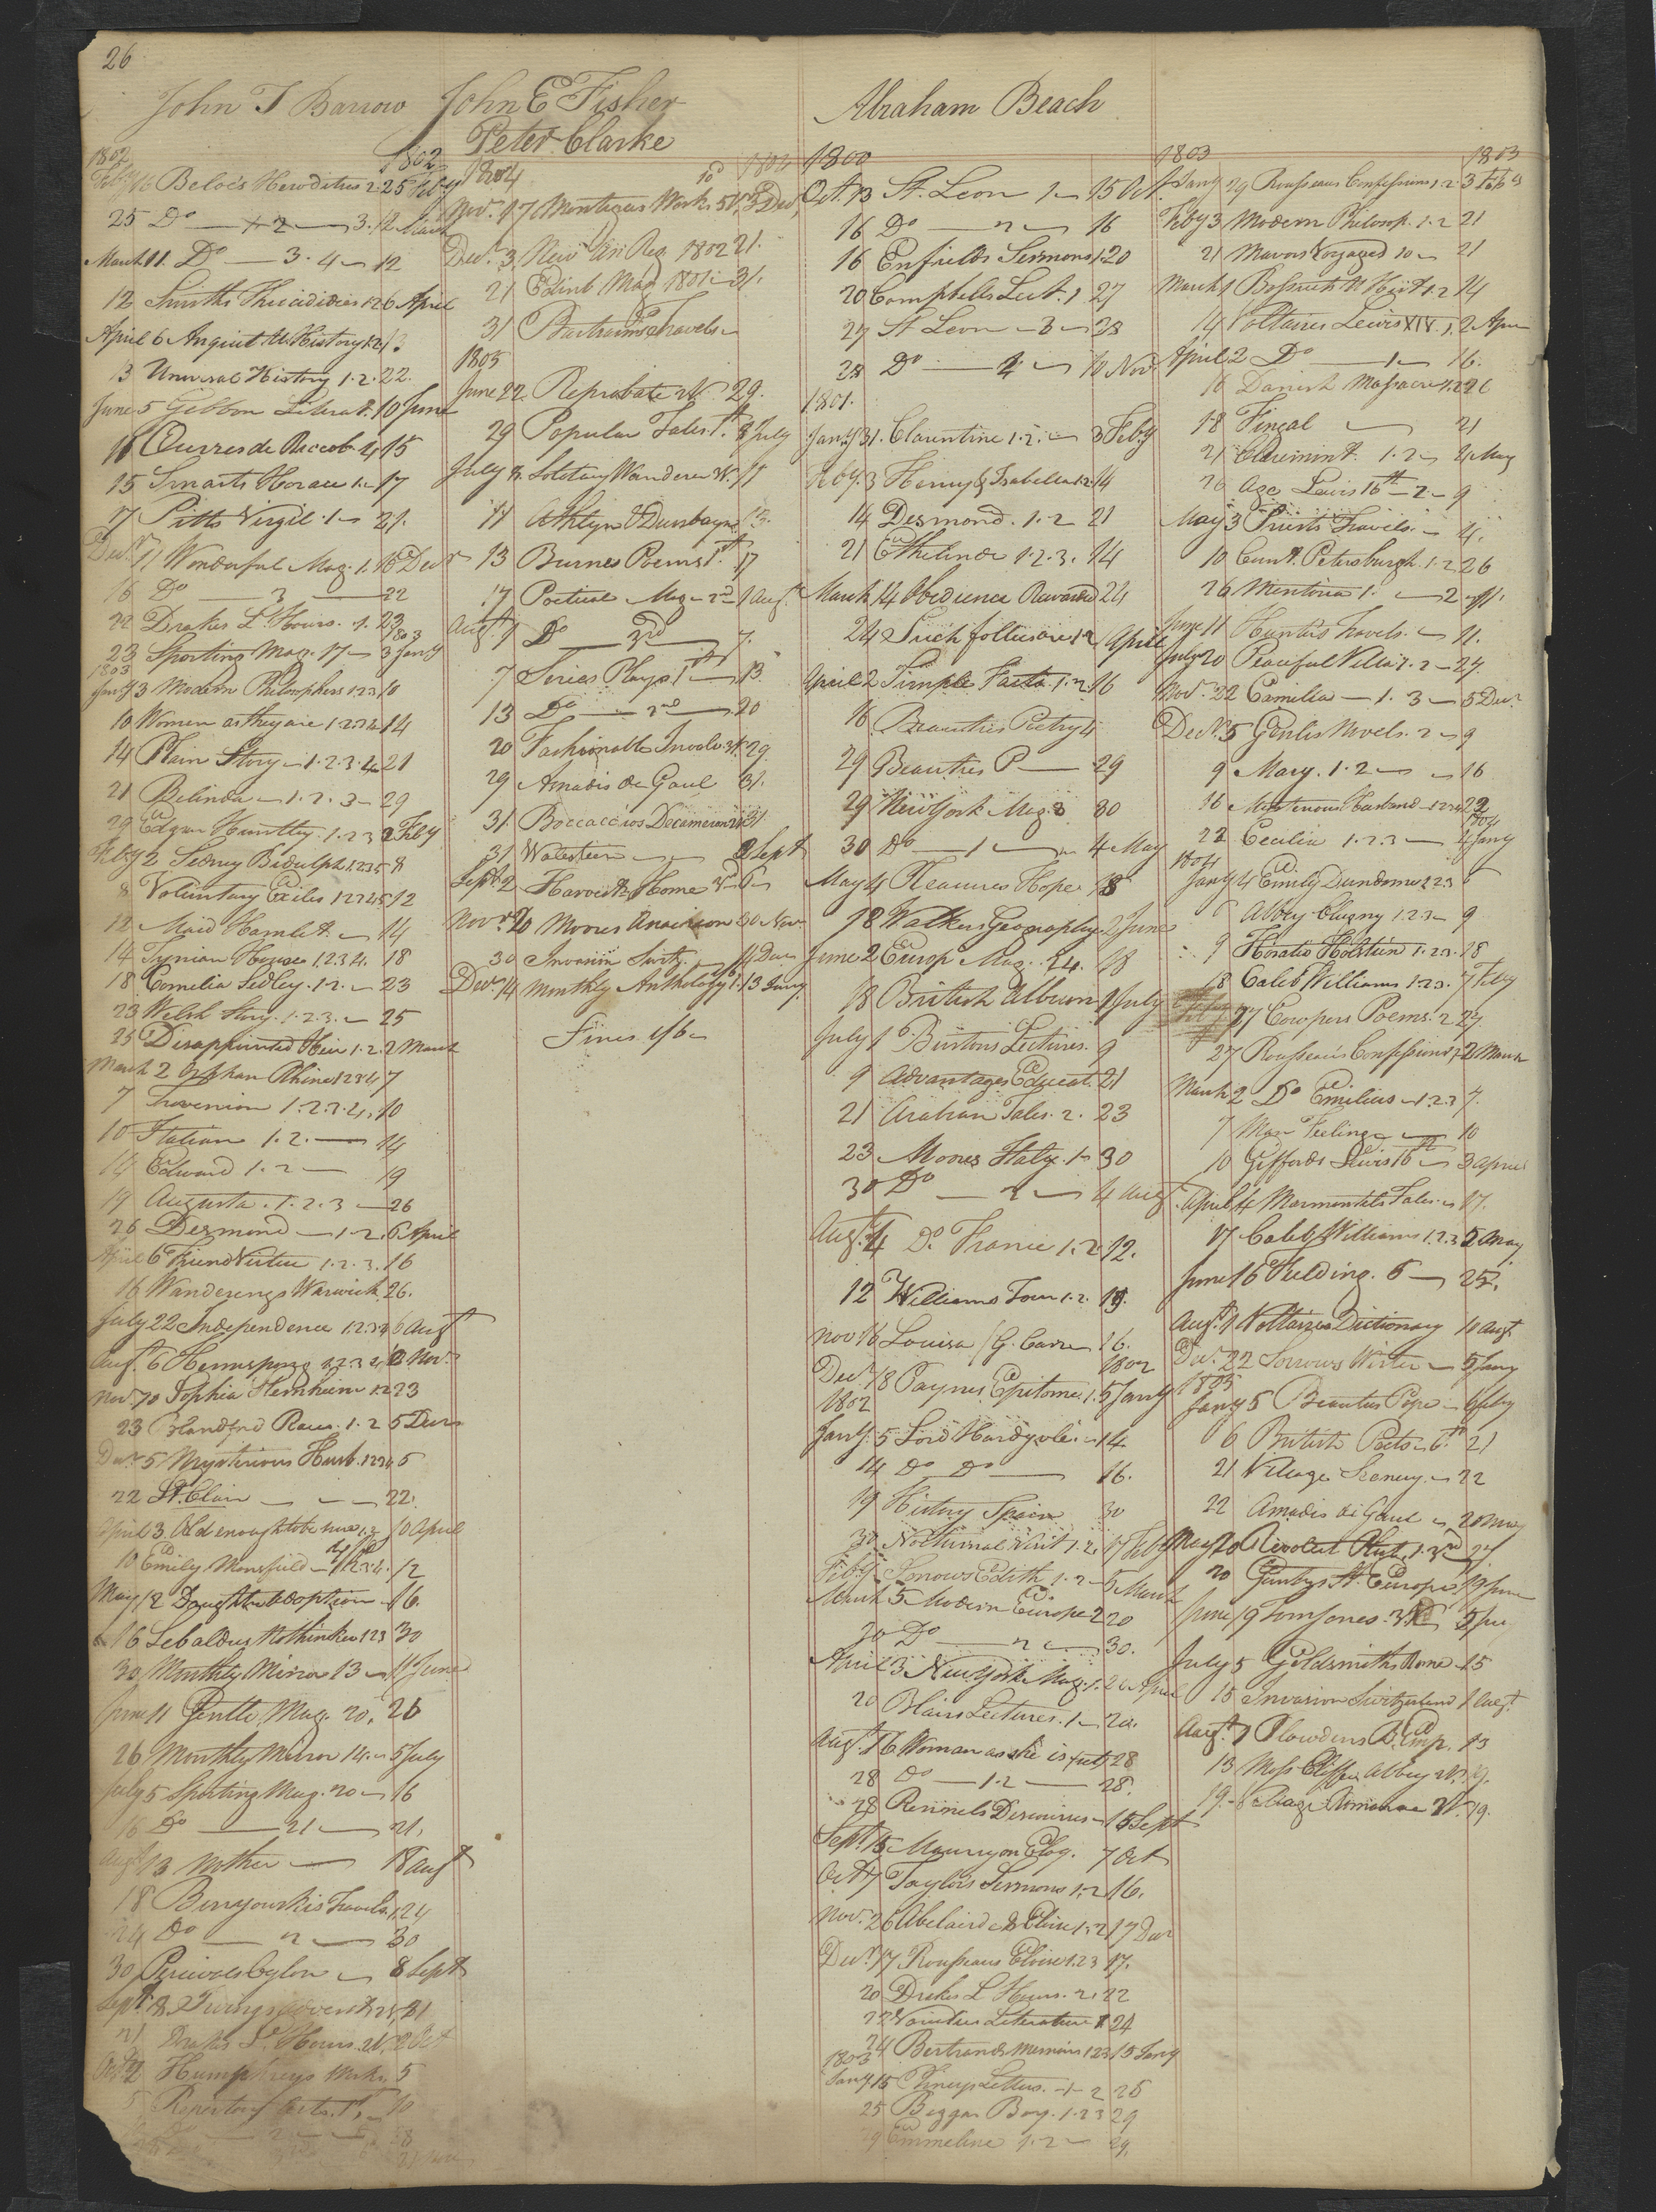 26
John T Barrow
1802 1802
Feby 16 Beloe's Herodotus 2 25 Feby
25 Do 3. 12 March
March 11. Do — 3. 4 — 12
12 Smiths Thucidides 1 2 6 April
April 6 Anquit U. History 1.2 13
13 Universal History 1. 2. 22.
June 5 Gibbon Literat. 10 June
10 Ouvres de 4 15
15 Smarts Horace 1 — 17
17 Pitts Virgil. 1 — 21.
Decr. 11 Wonderful Mag. 1. 16 Decr
16 Do — 3 — 22
22 Drakes L. Hours. 1. 23
1803
23 Sporting Mag. 17 — 3 Jany
1803
Jany 3 Modern Philosophers 1 2 3 10
10 Women as they are 1 2 3 4 14
14 Plain Story — 1. 2. 3. 4 — 21
21 Belinda — 1. 2. 3 — 29
29 Edgar Huntley. 1. 2 3 2 Feby
Feby 2 Sidney Bidulph 1 2 3 5 8
8 Voluntary Exiles 1 2 3 4 5 12
12 Maid Hamlet. — 14
14 Tynian House 1. 2 3 4. 18
18 Cornelia Sedley. 1. 2. — 23
23 Welsh Story. 1. 2. 3. — 25
25 Disappointed Heir 1. 2. 2 March
March 2 Orphan Rhine 1 2 3 4 7
7 Trevenion 1. 2. 3. 4. 10
10 Italian 1. 2. — 14
14 Edward 1. 2 — 19
19 Augusta. 1. 2. 3 — 26
26 Desmond — 1. 2. 6 April
April 6 Friend Virtue 1. 2. 3. 16
16 Wanderings Warwick 26.
July 22 Independence 1. 2 3 4 6 Augt
Augt. 6 Hermsprong 1. 2 3 2 Novr.
Nov. 20 Sophia Sternheim 1. 2 23
23 Blandford Races. 1. 2 5 Decr
Decr. 5 Mysterious Husb. 1 2 3 4 5
22 St. Clair — — — 22.
April 3 Old enough to be 10 April
10 Emily Mansfield — 1. 2 3 4. 12
May 12 Daughter Adoption — 16.
16 Sebaldus Nothinker 1 2 3 30
30 Monthly Mirror 13 — 11 June
June 11 Gentle. Mag. 20. 26
26 Monthly Mirror 14. — 5 July
July 5 Sporting Mag. 20 — 16
16 Do — 21 — 21.
Augt 13 Mother — 18 Augt
18 Benyouskis Travels. 1 24
24 Do — 2 — 30
30 Percivals Ceylon — 8 Sept
Sept. 8 21
21 Drakes L. Hours. 2 Oct
Oct 2 Humphreys Works. 5
5 Repertory Arts. 1st — 10
John E Fisher
Peter Clarke
1804 1804
Nov. 17 Montagues Works 5 V. 3 Decr
Decr. 3 New An Reg. 1802 21.
21 Edinb Mag 1801 — 31.
31 Bartrams Travels —
1805
June 22 Reprobate 29.
29 Popular Tales 1st. 8 July
July 8. Solotary Wanderer 11
11 Athlyn & Dunbayne 13.
13 Burnes Poems 1st. 17
17 Poetical Mag — 2nd 1 Augt.
Augt. 1 Do — 3rd — 7.
7 Series Plays 1st — 13.
13 Do — 2nd — 20
20 Fashionable Involv. 3 V. 29
29 Amadis de Gaul 31.
31 Boccaccios Decameron 31
31 Walstein — — 2 Sept
Sept. 2 Harvest Home 3d 6 —
Novr 20 Moores Anacreon 30 Nov.
30 Invasion Switz. — 14 Decr
Decr 14 Monthly Anthology 1. 13 Jany
Fines 1/6 —
Abraham Beach
1800
Oct. 13 St. Leon 1 — 15 Oct.
16 Do — 2 — 16
16 Enfields Sermons 1. 20
20 Campbells Lect. 1 27
27 St Leon — 3 — 28
28 Do — 2 — 10 Nov.
1801.
Jany 31. Clarentine 1. 2. — 3 Feby
Feby. 3 Henry & Isabella 1. 2. 14
14 Desmond. 1. 2 21
21 Ethelinde 1. 2. 3. 14
March 14 Obedience Rewarded 24
24 Such follies are 1. 2 April
April 2 Simple Facts 1. 2. 16
16 Beauties Poetry 4
29 Beauties P — 29
29 New York Mag. 3 30
30 Do — 1 — 4 May
May 4 Pleasures Hope 18
18 Walkers Geography. 2 June
June 2 Europ Mag. 24. 18
18 British Album 1 July
July 1 Burtons Lectures. 9
9 Advantages Educat. 21
21 Arabian Tales. 2. 23
23 Moores Italy. 1 — 30
30 Do — 2 — 4 Augt
Augt. 4 Do. France 1. 2 12.
12 Williams Tour 1. 2. 19.
Nov 16 Louisa / G. Carre 16.
1802
Decr. 18 Paynes Epitome 1. 5 Jany
1802
Jany. 5 Lord Hardyvole — 14.
14 Do Do — 16.
19 History Spain 30
30 Nocturnal Visit 1. 2. 17 Feby
Feby. Edith 1. 2 — 5 March
March 5 Modern Europe 2 20
20 Do — 2 — 30.
April 3 New York Mag. 1. 20 April
20 Blairs Lectures. 1 — 24.
Augt. 16 Woman as she is 28
28 Do — 1. 2 — 28.
28 Rennels Discourses — 15 Sept
Sept. 15 Maury on Eloq. 7 Oct
Oct. 7 Taylors Sermons 1. 2 16.
Nov. 26 Abelaird & Eloise 1. 2 17 Decr
Decr. 17 Rousseaus Eloise 1 2 3 17.
20 Drakes L Hours. 2. 22
22 Varieties Literature 1 24
24 Bertrands Memoirs 1 2 3 15 Jany
1803
Jany 15 Plineys Letters. — 1 — 2 25
25 Beggar Boy. 1. 2 3 29
29 Emmeline 1. 2 — 29.
1803 1803
Jany 29 Rousseaus Confessions 1. 2 3 Feby
Feby 3 Modern Philosop. 1. 2 21
21 Mavors Voyages 10 — 21
March 1 Bossuets U Hist. 1. 2 14
14 Voltaires Lewis XIV. 1. 2 Apr
April 2 Do — 1 — 16.
16 Danish Massacre 1. 2 26
18 Fingal — 21
21 Claremont. 1. 2 — 4 May
26 Age Lewis 15th — 2 — 9
May 3 Travels. — 4.
10 Petersburgh. 1. 2 26
26 Mentoria 1. — 2 — 11.
June 11 Hunters Travels. — 11.
July 20 Peaceful Villa 1. 2 — 27.
Nov. 22 Camilla — 1. 3 — 5 Decr
Decr. 5 Genlis Novels. 2 — 9
9 Mary. 1. 2 — — 16
16 Misterious Husband — 1 2 3 4 22
1804
22 Cecilia 1. 2. 3 — 4 Jany
1804
Jany 4 Emily Dundorne 1. 2 3 6
6 Abbey Clugny 1. 2 3 — 9
9 Horatio Holstein 1. 2 3. 18
18 Caleb Williams 1. 2 3. 7 Feby
17 Cowpers Poems. 2 27.
27 Rousseaus Confessions 1. 2 March
March 2 Do Emilius — 1. 2. 3 7.
7 Man Feeling — — 10
10 Giffords Lewis 16th — 3 April
April 4 Marmontels Tales — 17.
17 Caleb Williams 1. 2. 3 5 May
June 16 Fielding. 5 — 25.
Augt. 1 Voltaires Dictionary 10 Augt
Decr. 22 Sorrows Werter — 5 Jany
1805
Jany 5 Beauties Pope — 6 Feby
6 British Poets — 6th 21
21 Village Scenery. — 22
22 Amadis de Gaul — 20 May
May 20 27
20 Europe 19 June
June 19 Tom Jones. 3d 5 July
July 5 Goldsmiths Rome 15
15 Invasion Switzerland 1 Augt
Augt. 1 Plowdens B. Emp. 13
13 Abbey 2 V. 19.
19. — Village Romance 2 V. 19.